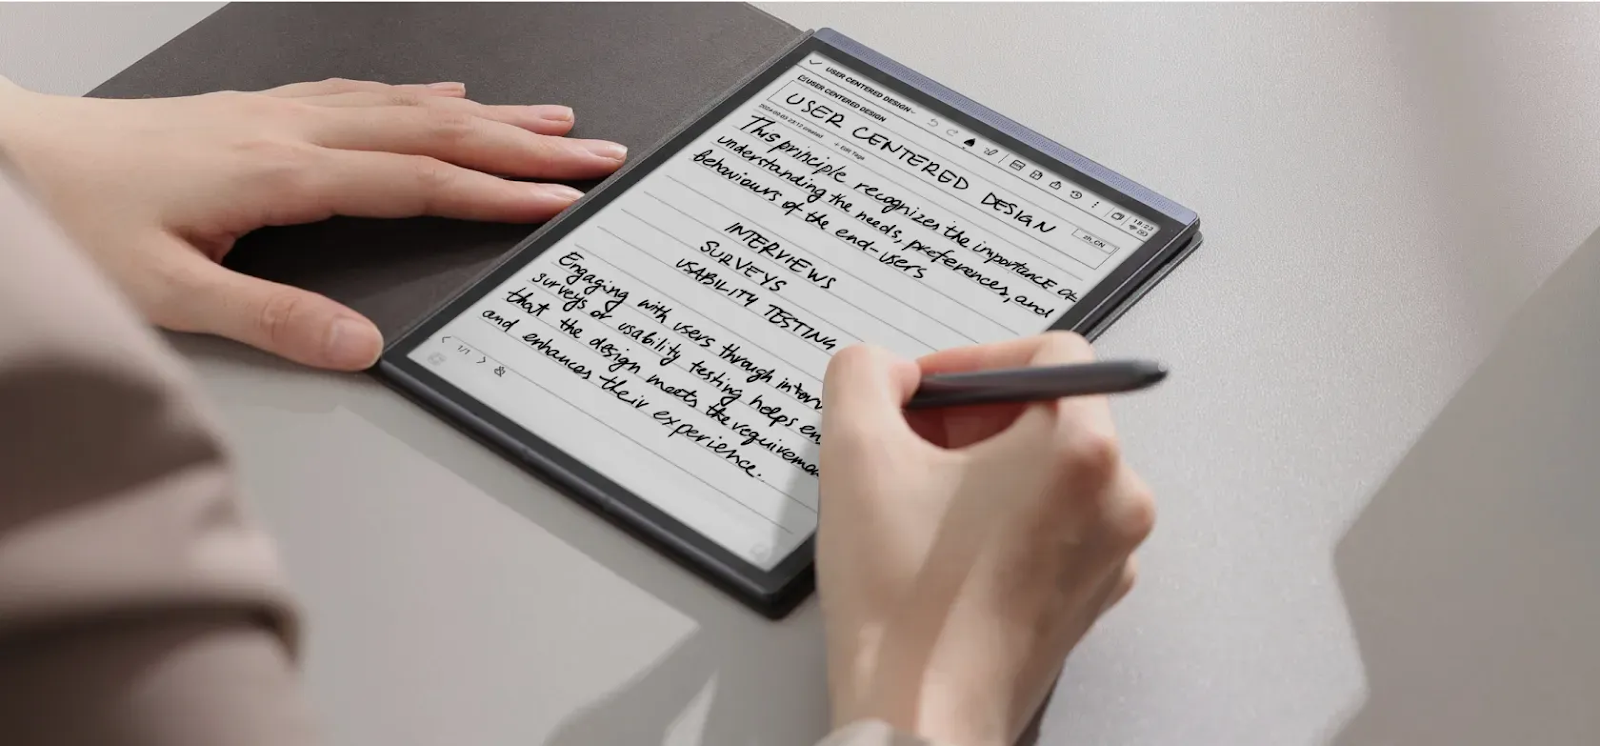 USER CENTERED DESIGN
18:23
USER CENTERED DESIGN
USER CENTERED DESIGN
zh_CN
2024-09-03 23:12 created
+ Edit Tags
This principle recognizes the importance of
understanding the needs, preferences, and
behaviours of the end-users
INTERVIEWS
SURVEYS
USABILITY TESTING
Engaging with users through
surveys or usability testing helps
that the design meets the
and enhances their experience.
1/1